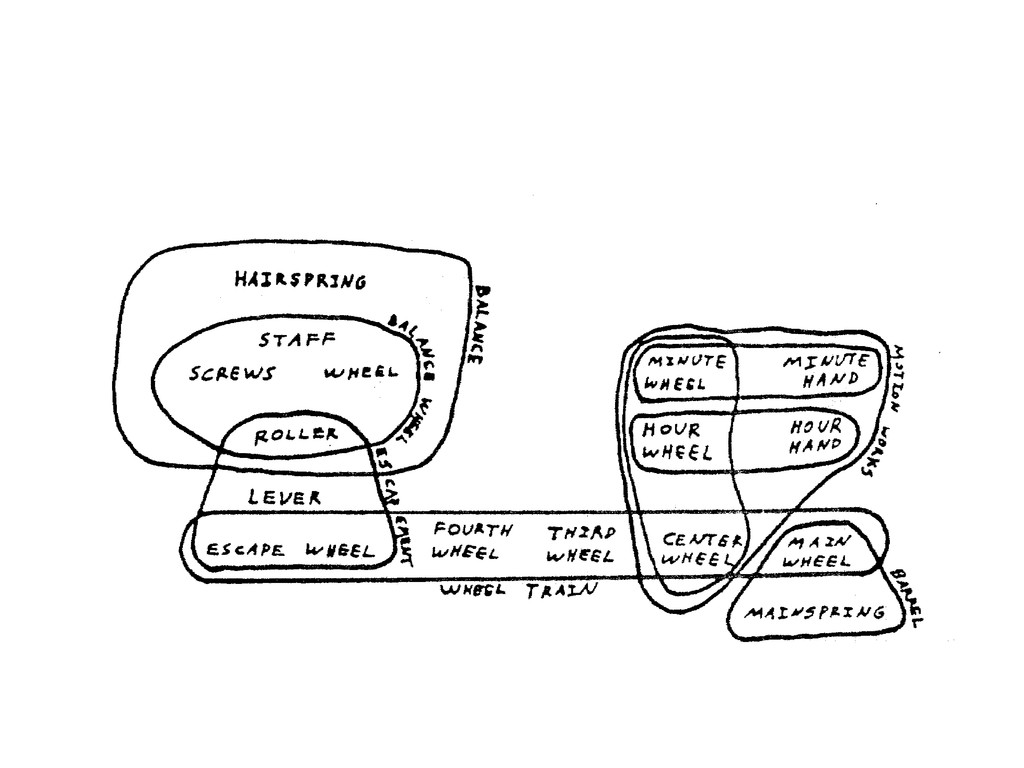 HAIRSPRING
BALANCE
STAFF
BALANCE WHEEL
SCREWS WHEEL
ROLLER
ESCAPEMENT
LEVER
ESCAPE WHEEL
FOURTH
WHEEL
THIRD
WHEEL
WHEEL TRAIN
MINUTE
WHEEL
MINUTE
HAND
MOTION WORKS
HOUR
WHEEL
HOUR
HAND
CENTER
WHEEL
MAIN
WHEEL
BARREL
MAINSPRING